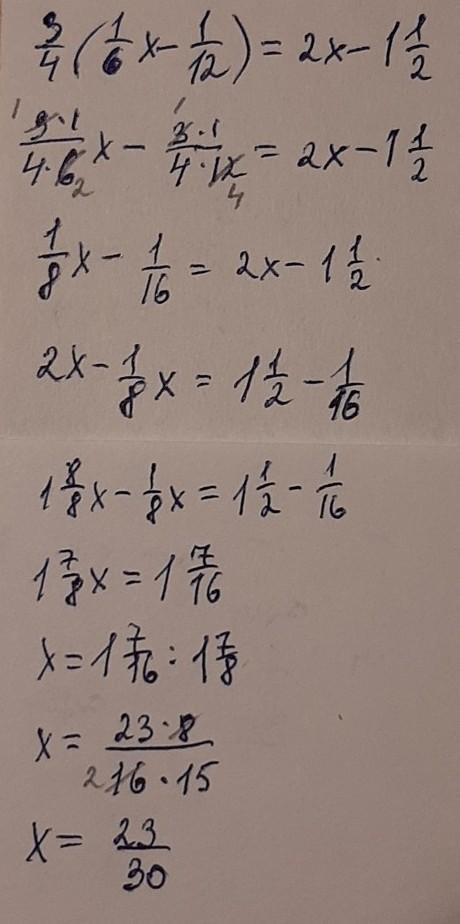 3/4(1/6x - 1/12) = 2x - 1 1/2
1 3·1/4·6 2 x - 1 3·1/4·12 4 = 2x - 1 1/2
1/8x - 1/16 = 2x - 1 1/2
2x - 1/8x = 1 1/2 - 1/16
1 8/8x - 1/8x = 1 1/2 - 1/16
1 7/8x = 1 7/16
x = 1 7/16 : 1 7/8
x = 23·8/2 16·15
x = 23/30